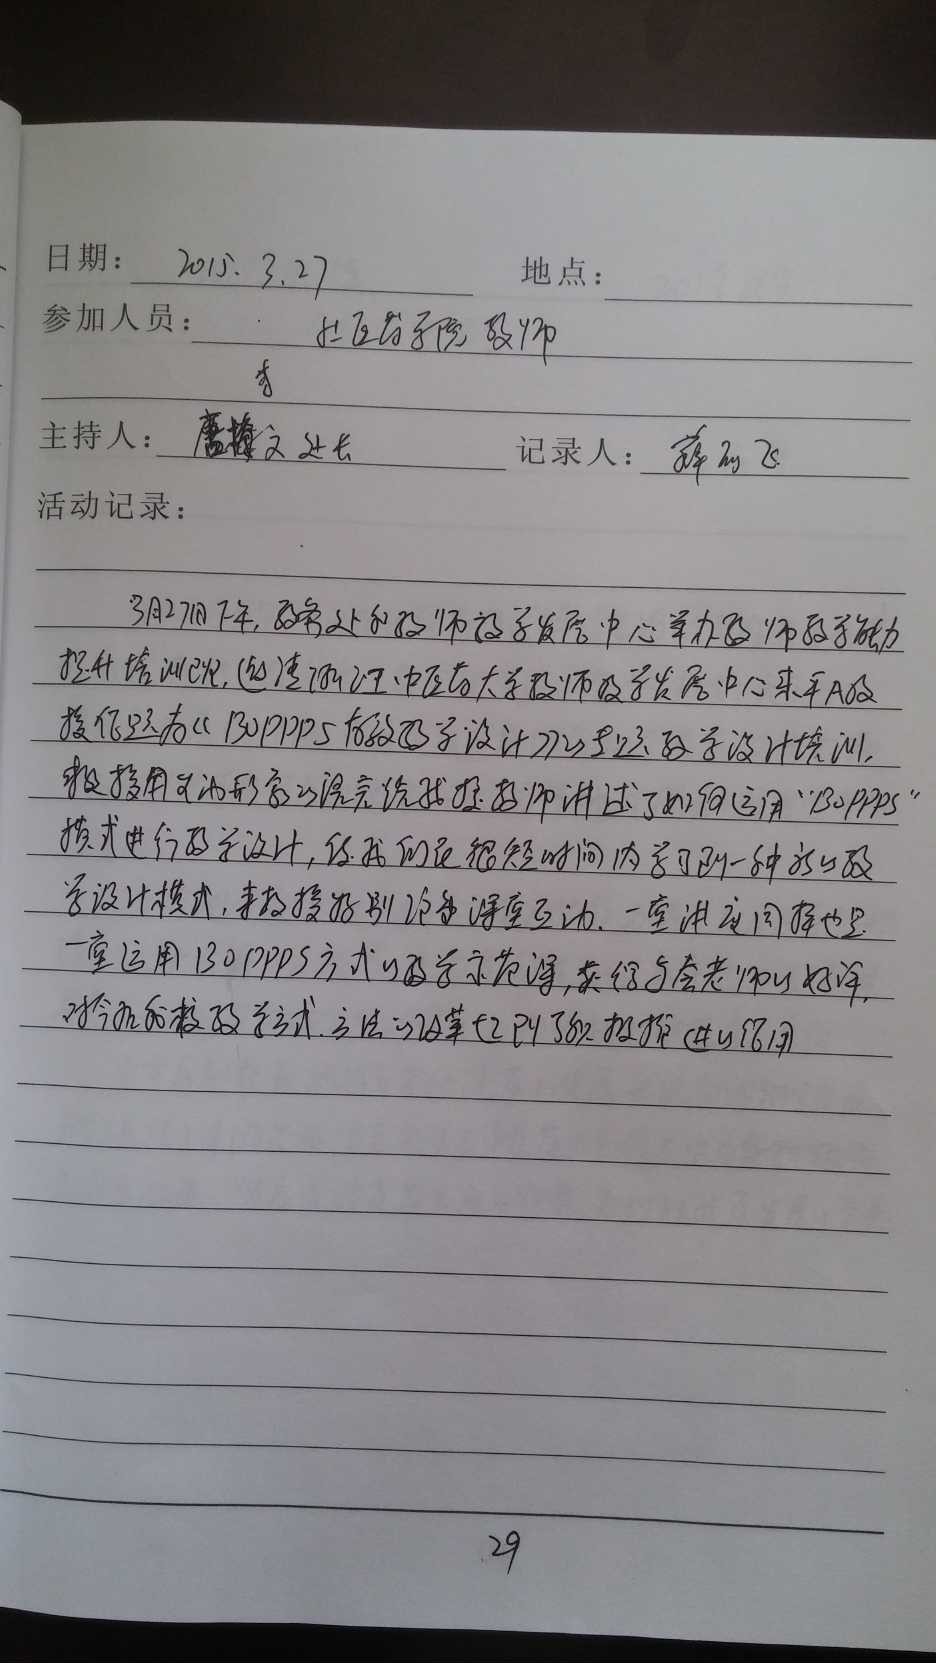 日期： 2015.3.27 地点：
参加人员： 社区药学院教师
主持人： 唐梅文处长 记录人： 薛 飞
活动记录：
3月27日下午，教务处和教师教学发展中心举办教师教学能力
提升培训，邀请浙江中医药大学教师教学发展中心来平教
授作题为《BOPPPS有效教学设计》的专题教学设计培训，
来教授用生动形象的语言给我校教师讲述了如何运用“BOPPPS”
模式进行教学设计，使我们在很短时间内学习到一种新的教
学设计模式，来教授特别注重课堂互动，一堂讲座同样也是
一堂运用BOPPPS方式的教学示范课，获得与会老师的好评，
对今后我校教学方式、方法的改革起到了积极推进的作用
29